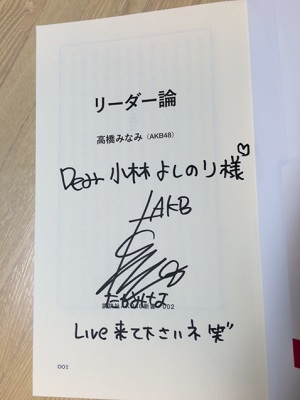 リーダー論
高橋みなみ（AKB48）
Dear 小林よしのり様
AKB
たかみな
002
Live 来て下さいネ 笑"
001